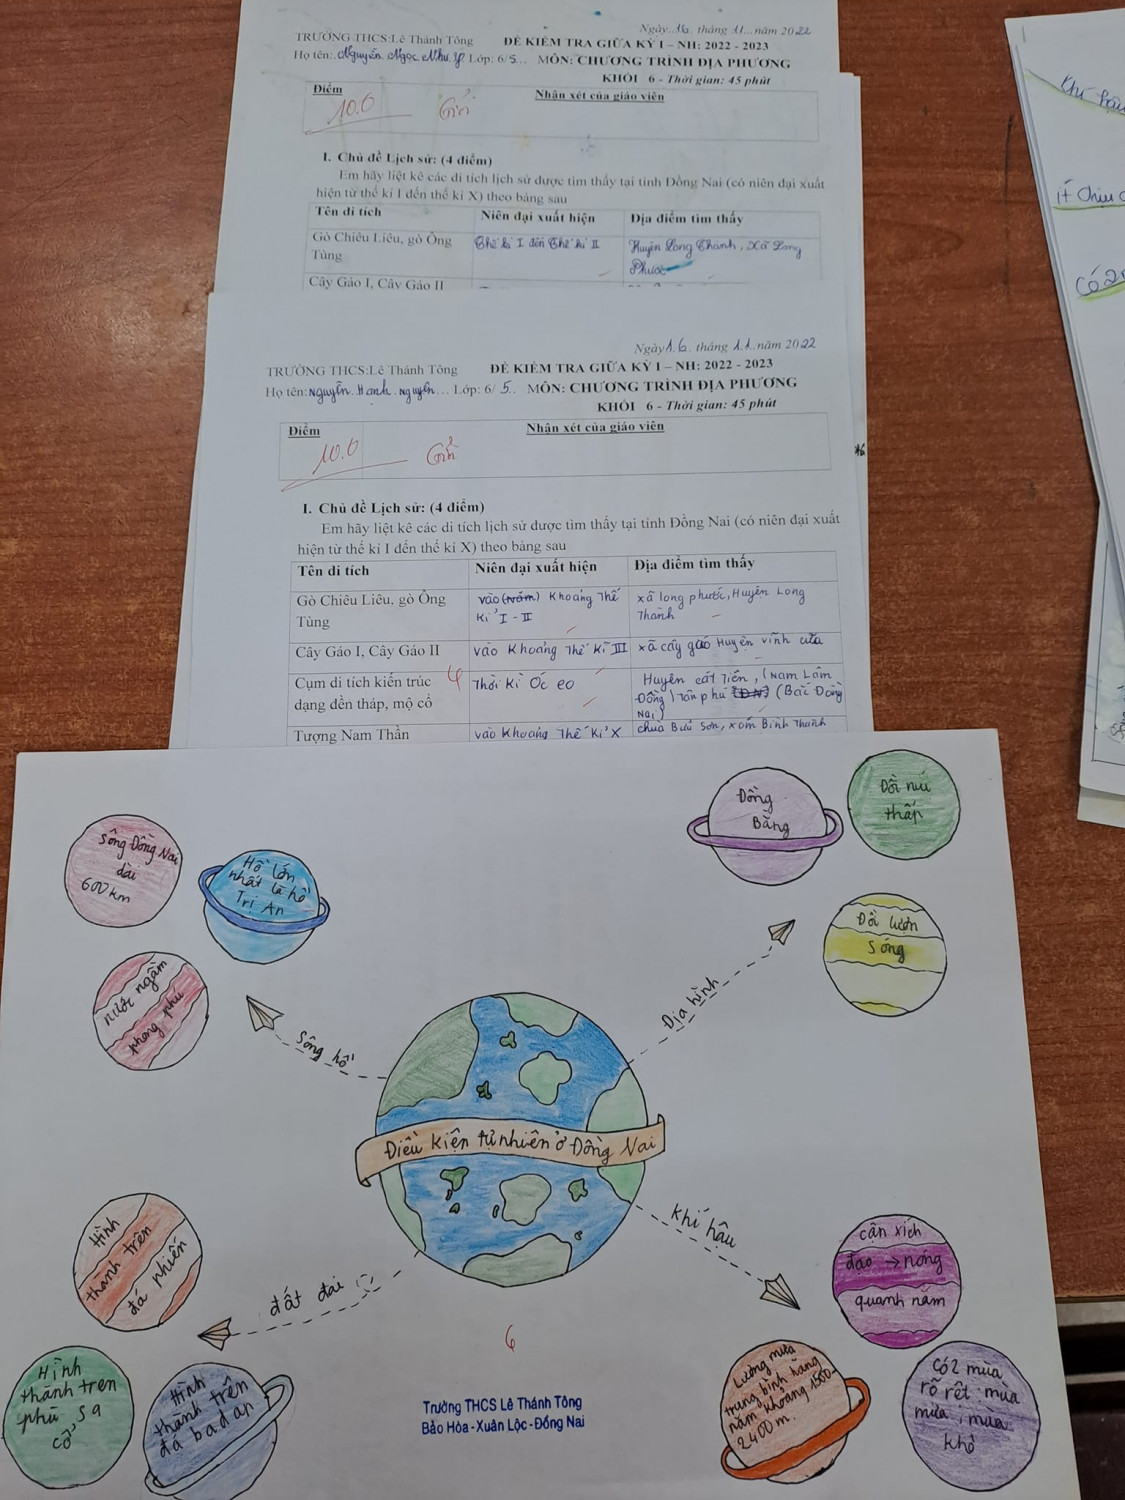 Ngày 16 tháng 11 năm 2022
TRƯỜNG THCS:Lê Thánh Tông
ĐỀ KIỂM TRA GIỮA KỲ I – NH: 2022 - 2023
Họ tên: Nguyễn Ngọc Như Ý Lớp: 6/5 MÔN: CHƯƠNG TRÌNH ĐỊA PHƯƠNG
KHỐI 6 - Thời gian: 45 phút
Điểm Nhận xét của giáo viên
10.0 Giỏi
I. Chủ đề Lịch sử: (4 điểm)
Em hãy liệt kê các di tích lịch sử được tìm thấy tại tỉnh Đồng Nai (có niên đại xuất
hiện từ thế kỉ I đến thế kỉ X) theo bảng sau
Tên di tích Niên đại xuất hiện Địa điểm tìm thấy
Gò Chiêu Liêu, gò Ông Thế kỉ I đến Thế kỉ II Huyện Long Thành, xã Long
Tùng Phước
Cây Gáo I, Cây Gáo II
Ngày 16 tháng 11 năm 2022
TRƯỜNG THCS:Lê Thánh Tông
ĐỀ KIỂM TRA GIỮA KỲ I – NH: 2022 - 2023
Họ tên: Nguyễn Hạnh Nguyên Lớp: 6/5 MÔN: CHƯƠNG TRÌNH ĐỊA PHƯƠNG
KHỐI 6 - Thời gian: 45 phút
Điểm Nhận xét của giáo viên
10.0 Giỏi
I. Chủ đề Lịch sử: (4 điểm)
Em hãy liệt kê các di tích lịch sử được tìm thấy tại tỉnh Đồng Nai (có niên đại xuất
hiện từ thế kỉ I đến thế kỉ X) theo bảng sau
Tên di tích Niên đại xuất hiện Địa điểm tìm thấy
Gò Chiêu Liêu, gò Ông vào (năm) Khoảng Thế xã long phước, Huyện Long
Tùng Kỉ I - II Thành
Cây Gáo I, Cây Gáo II vào Khoảng Thế Kỉ III xã cây gáo Huyện vĩnh cửu
Cụm di tích kiến trúc 4 Thời Kì Óc eo Huyện cát Tiên, (Nam Lâm
dạng đền tháp, mộ cổ Đồng) Tân phú (ĐN) (Bắc Đồng
Nai)
Tượng Nam Thần vào Khoảng Thế Kỉ X chùa Bửu Sơn, xóm Bình Thành
Khí hậu
ít chịu
Có 2
Sông Đồng Nai
dài
600 km
Hồ lớn
nhất là hồ
Trị An
nước ngầm
phong phú
Sông hồ
Đồng
Bằng
Đồi núi
thấp
Đồi lượn
Sóng
Địa hình
Điều kiện tự nhiên ở Đồng Nai
Hình
thành trên
đá phiến
đất đai
Hình
thành trên
phù sa
cổ
Hình
thành trên
đá badan
Khí hậu
cận xích
đạo → nóng
quanh năm
Lượng mưa
trung bình hàng
năm khoảng 1500-
2400 m.
Có 2 mùa
rõ rệt: mùa
mưa, mùa
khô
6
Trường THCS Lê Thánh Tông
Bảo Hòa - Xuân Lộc - Đồng Nai